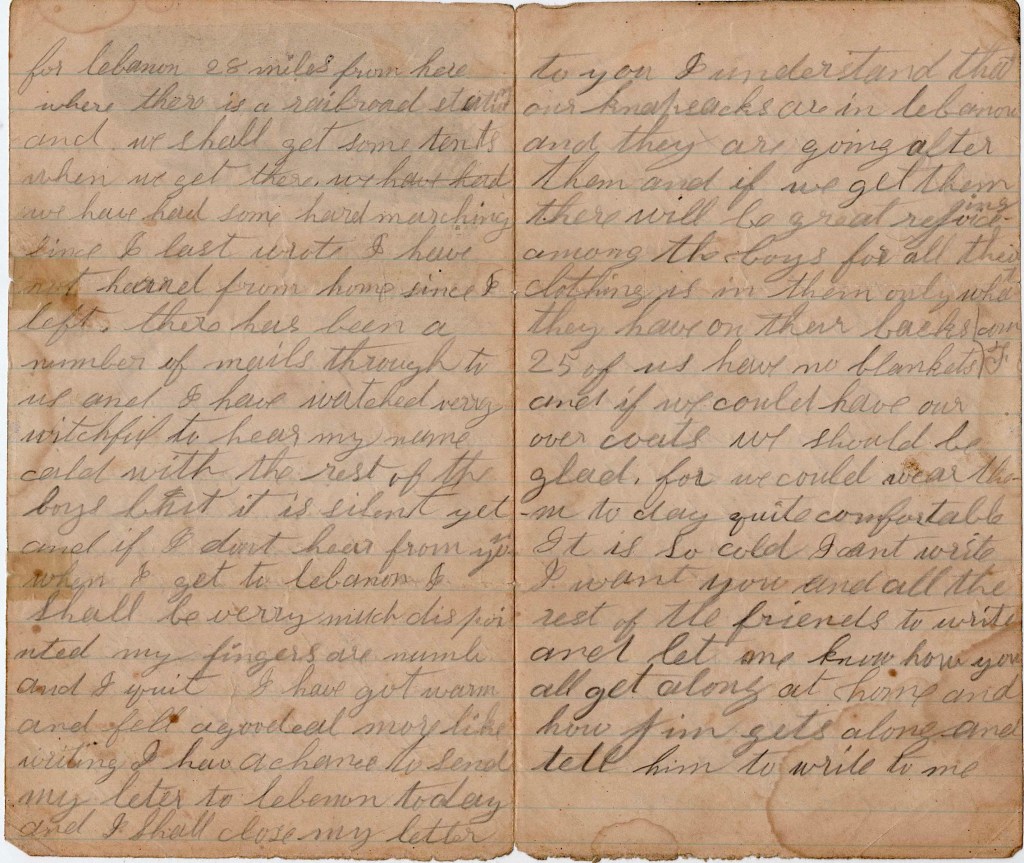 for lebanon 28 miles from here
where there is a railroad station
and we shall get some tents
when we get there. we have hard
we have hard some hard marching
since I last wrote I have
not heared from home since I
left. there has been a
number of mails through to
us and I have watched verry
witchfil to hear my name
cald with the rest of the
boys but it is silent yet
and if I dont hear from you
when I get to lebanon I
shall be verry much dis poi
nted my fingers are numb
and I quit I have got warm
and fell a goodeal more like
writing I hav a chance to send
my leter to lebenon today
and I shall close my letter
to you I understand that
our knapsacks are in lebanon
and they are going after
them and if we get them
there will be great rejoiceing
among the boys for all their
clothing is in them only what
they have on their backs
25 of us have no blankets
and if we could have our
over coats we should be
glad. for we could wear the-
-m to day quite comfortable
It is so cold I cant write
I want you and all the
rest of the friends to write
and let me know how you
all get along at home and
how Jim gets along and
tell him to write to me